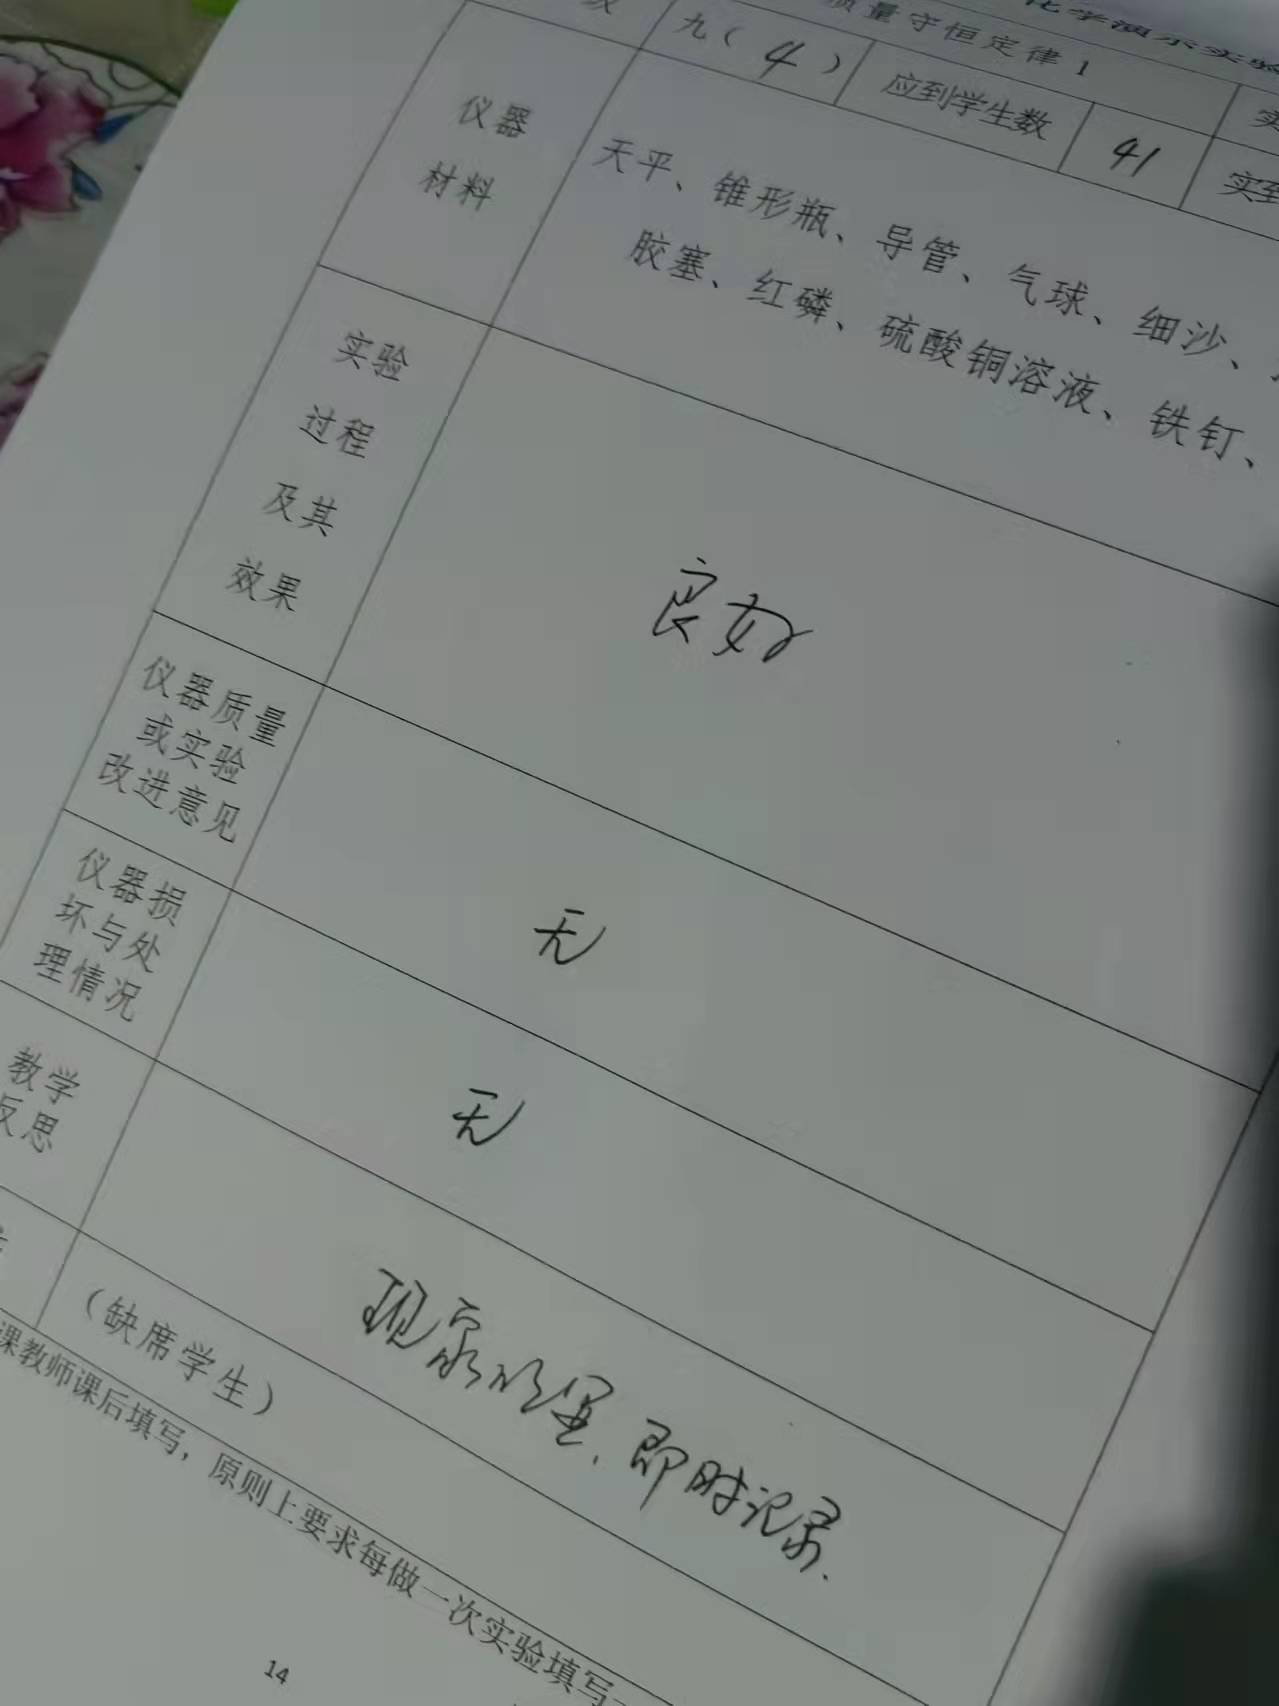 化学演示实验
质量守恒定律1
次
九(4) 应到学生数 41 实到
仪器
材料
天平、锥形瓶、导管、气球、细沙、
胶塞、红磷、硫酸铜溶液、铁钉、
实验
过程
及其
效果
良好
仪器质量
或实验
改进意见
无
仪器损
坏与处
理情况
无
教学
反思
现象明显,即时记录.
(缺席学生)
课教师课后填写,原则上要求每做一次实验填写一
14